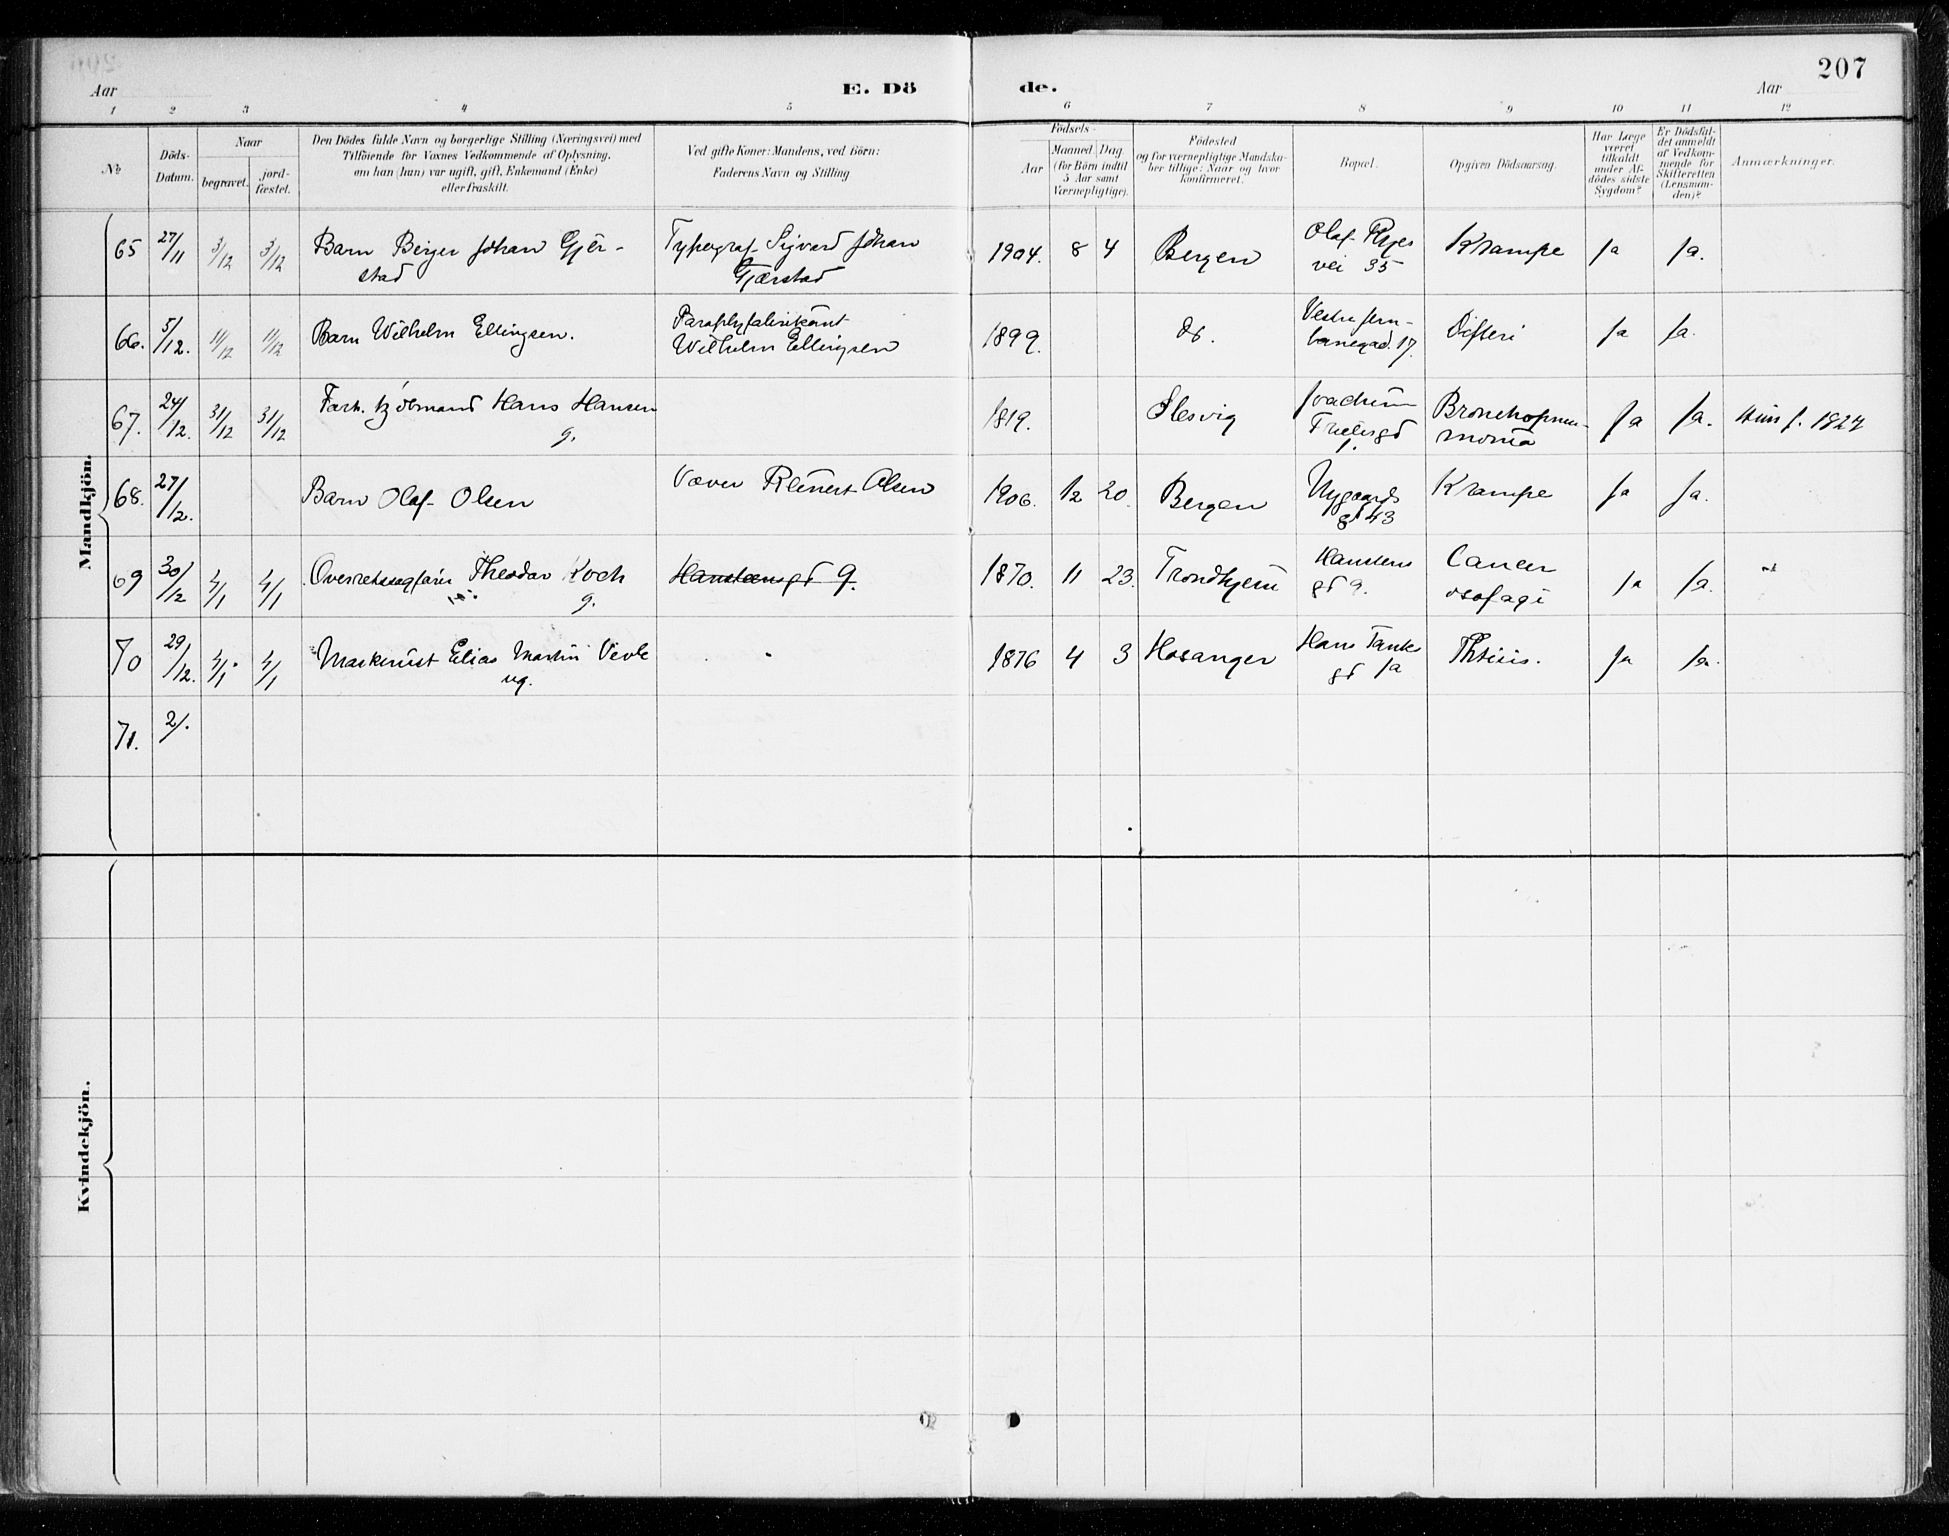 207
Aar E. Dö de. Aar
1 2 3 4 5 6 7 8 9 10 11 12
№
Döds-
Datum.
Naar
begravet.
jord-
fæstet.
Den Dödes fulde Navn og borgerlige Stilling (Næringsvei) med
Tilföiende for Voxnes Vedkommende af Oplysning,
om han (hun) var ugift, gift, Enkemand (Enke)
eller fraskilt.
Ved gifte Koner: Mandens, ved Börn:
Faderens Navn og Stilling
Födsels-
Aar
Maaned. Dag.
(for Börn indtil
5 Aar samt
Værnepligtige).
Födested
og for værnepligtige Mandska-
ber tillige: Naar og hvor
konfirmeret.
Bopæl.
Opgiven Dödsaarsag.
Har Læge
været
tilkaldt
under Af-
dödes sidste
Sygdom?
Er Dödsfal-
det anmeldt
af Vedkom-
mende for
Skifteretten
(Lensman-
den)?
Anmærkninger.
Mandkjön.
65 27/11 3/12 3/12 Barn Birger Johan Gjer-
stad
Typograf Sigvard Johan
Gjærstad
1904. 8 4 Bergen
Olaf Ryes
vei 35
Krampe Ja Ja.
66. 5/12. 11/12 11/12 Barn Wilhelm Ellingsen.
Paraplyfabrikant
Wilhelm Ellingsen
1899. do.
Vestre Jern-
banegad. 17.
Difteri Ja Ja.
67. 24/12. 31/12 31/12 Forh. kjøbmand Hans Hansen
g.
1819. Slesvig
Joachim
Frielesgd
1.
Bronchopneu-
monia
Ja Ja. 1824
68. 27/12. Barn Olaf Olsen
Væver Reinert Olsen
1906. 12 20. Bergen
Nygaards
gd 43
Krampe Ja Ja.
69 30/12 4/1 4/1 Overretssagfører Theodor Koch
g.
Hansteensgd 9.
1870. 11 23. Trondhjem
Hansteens
gd 9.
Cancer
osofagi
Ja Ja.
70 29/12. 4/1 4/1 Maskinist Elias Martin Vevle
ug.
1876 4 3 Hosanger
Hans Tanks
gd 1a
Phtisis. Ja Ja.
71. 2/.
Kvindekjön.